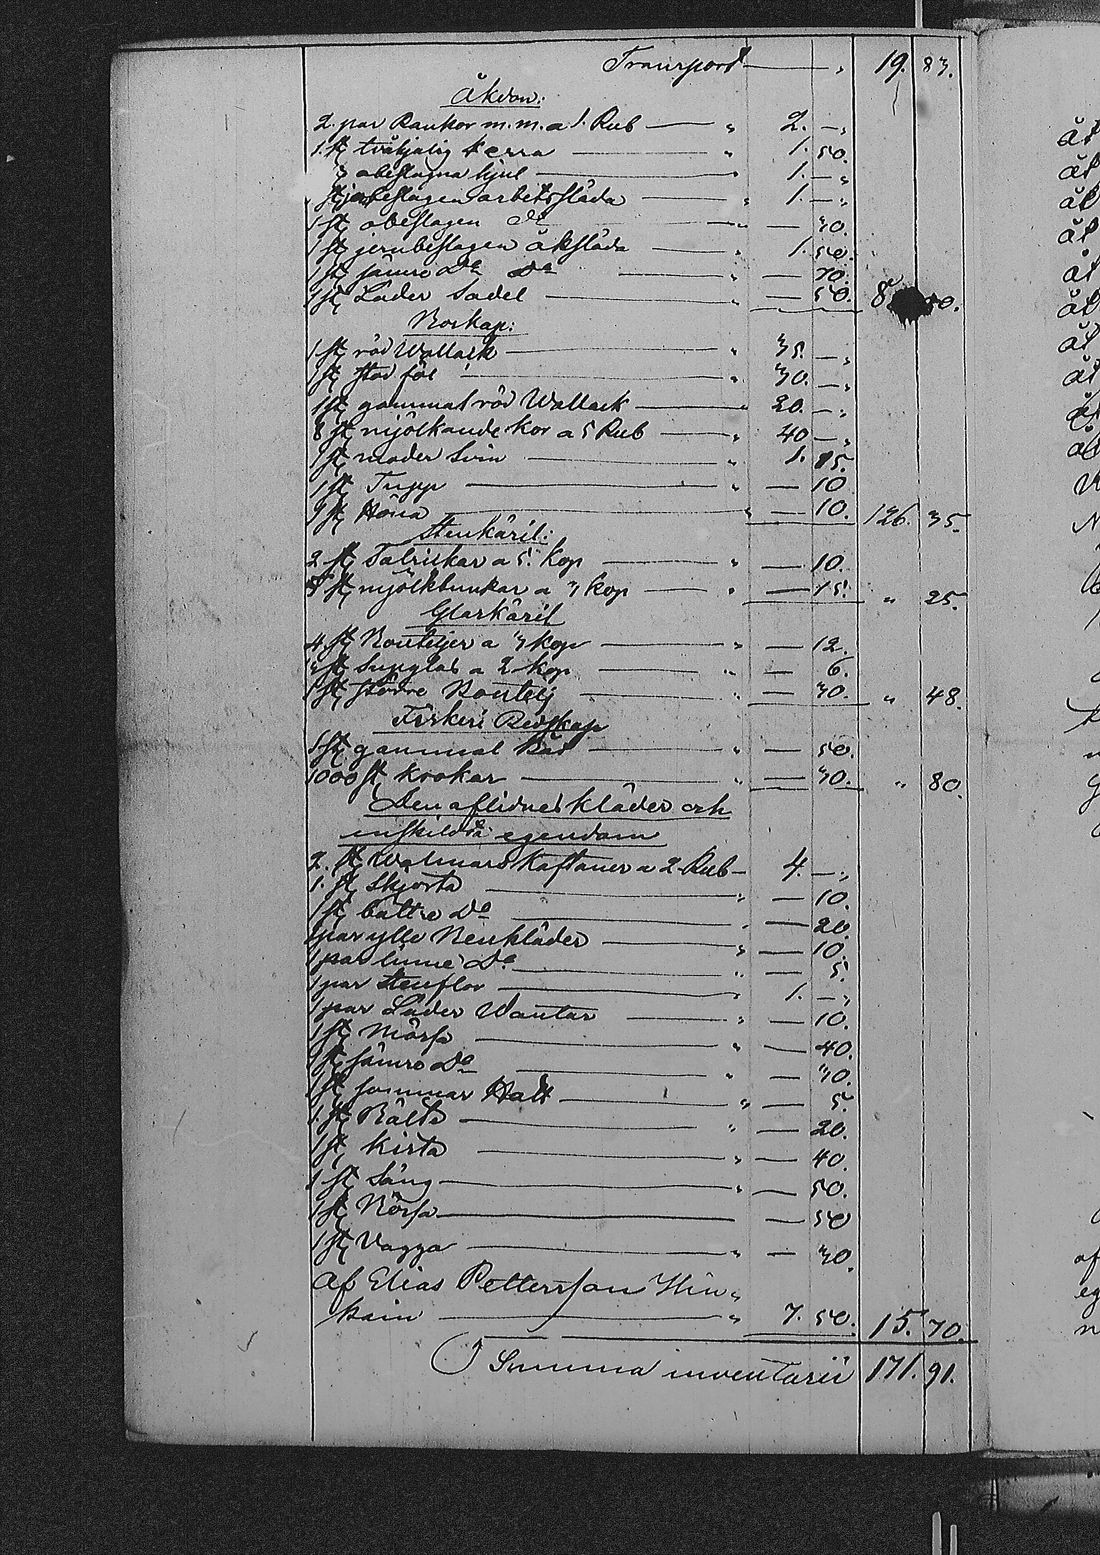 Transport — „ 19. 83.
Åkdon:
2. par Rankor m.m. a 1. Rub — „ 2. — „
1. st tvåhjulig kerra — „ 1. 50.
3 obeslagna hjul — „ 1. — „
1 st jernbeslagen arbetsslåda — „ 1. — „
1 st obeslagen do — „ — 30.
1 st jernbeslagen åkslåda — „ 1. 50.
1 st sämre Do Do — „ — 70.
1 st Läder Sadel — „ — 50. 8. 50.
Boskap:
1 st röd Wallack — „ 35. — „
1 st stod föl — „ 30. — „
1 st gammal röd Wallack — „ 20. — „
8 st mjölkande kor a 5 Rub — „ 40 — „
1 st moder Svin — „ 1. 15.
1 st Tupp — „ — 10
9 st Höna — „ — 10. 126. 35.
Stenkäril:
2 st Talrickar a 5. kop — „ — 10.
5 st mjölkbunkar a 3 kop — „ — 15. „ 25.
Glaskäril
4 st Bouteljer a 3 kop — „ — 12.
3 st Supglas a 2 kop — „ — 6.
1 st större Boutelj — „ — 30. „ 48.
Fiskeri Redskap
1 st gammal Båt — „ — 50.
1000 st krokar — „ — 30. „ 80.
Den aflidnes kläder och
enskildta egendom
2. st Walmars Kaftaner a 2 Rub — 4. — „
1. st Skjorta — „ — 10.
1 st bättre Do — „ — 20.
1 par ylle Benkläder — „ — 10.
1 par linne Do — „ — 5.
1 par Stenflor — „ 1. — „
1 par Läder Wantar — „ — 10.
1 st Mössa — „ — 40.
1 st sämre Do — „ — 30.
1 st sommar Hatt — „ — 5.
1 st Bälte — „ — 20.
1 st kista — „ — 40.
1 st Säng — „ — 50.
1 st Börsa — — 50
1 st Vagga — „ — 30.
Af Elias Pettersson Hin„
kain — „ 7. 50. 15. 70.
Summa inventarii 171. 91.